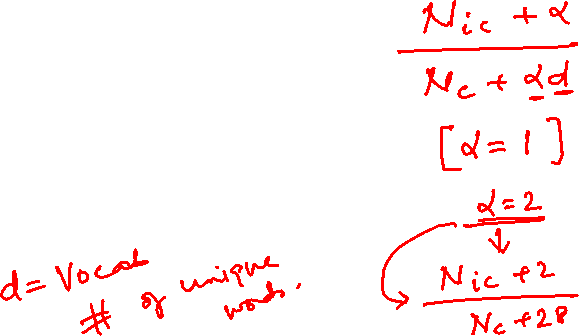 Nic + α
Nc + αd
[α = 1]
α = 2
↓
Nic + 2
Nc + 28
d = Vocab
# of unique
words.